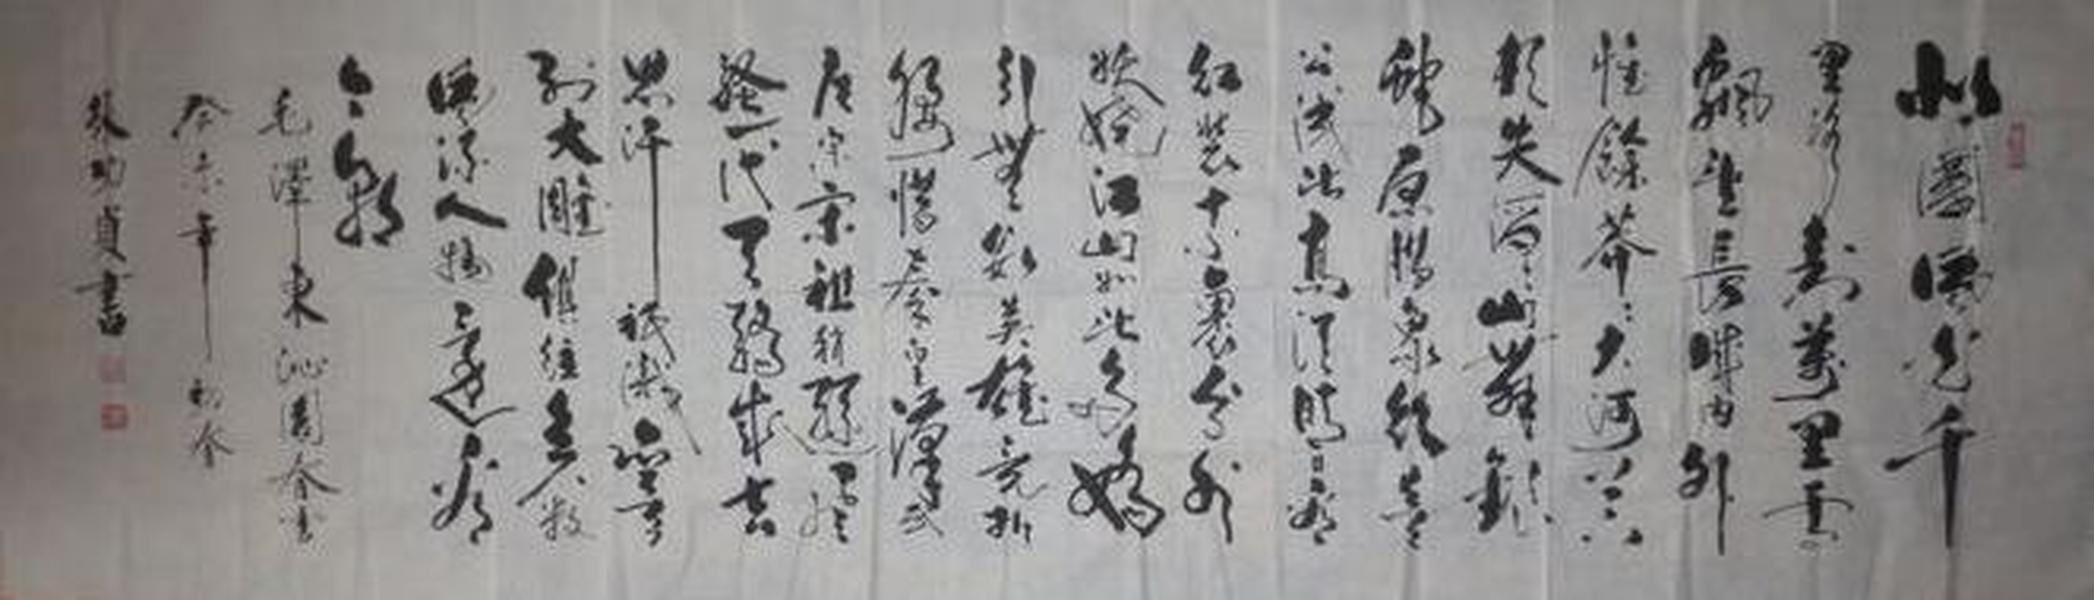 北國風光千
里冰封萬里雪
飄望長城內外
惟餘莽々大河上下
頓失滔々山舞銀
蛇原馳蠟象欲與天
公試比高須晴日看
紅裝素裹分外
妖嬈江山如此多嬌
引無數英雄競折
腰惜秦皇漢武
唐宗宋祖稍遜風
騷一代天驕成吉
思汗祇識彎弓
射大雕俱往矣數
風流人物還看
今朝
毛澤東沁園春雪
癸未年初春
功貞書